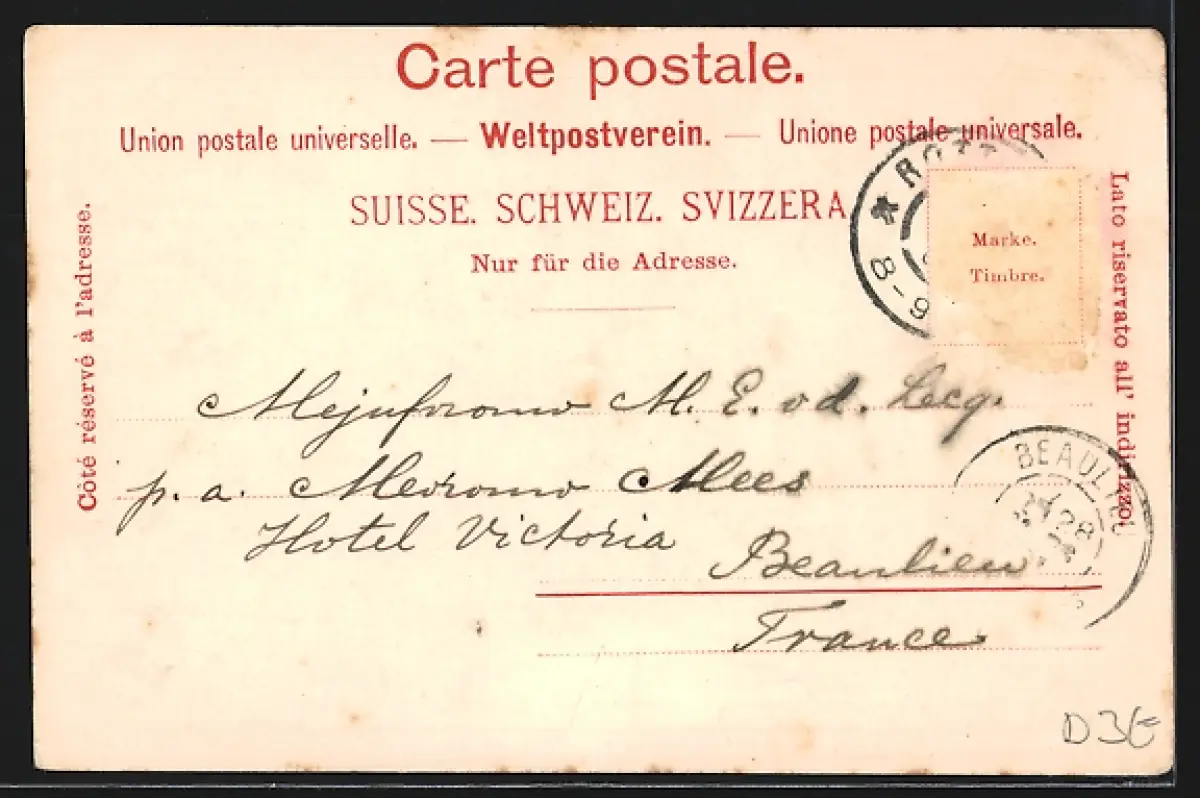 Carte postale.
Union postale universelle. — Weltpostverein. — Unione postale universale.
SUISSE. SCHWEIZ. SVIZZERA
Nur für die Adresse.
Côté réservé à l'adresse.
Lato riservato all' indirizzo.
* ROTT
8-9
Marke.
Timbre.
Mejufromo M. E. v d. Lecq.
p. a. Mevromo Mees
Hotel Victoria
Beaulieu.
France
BEAULIEU
28
D 3€